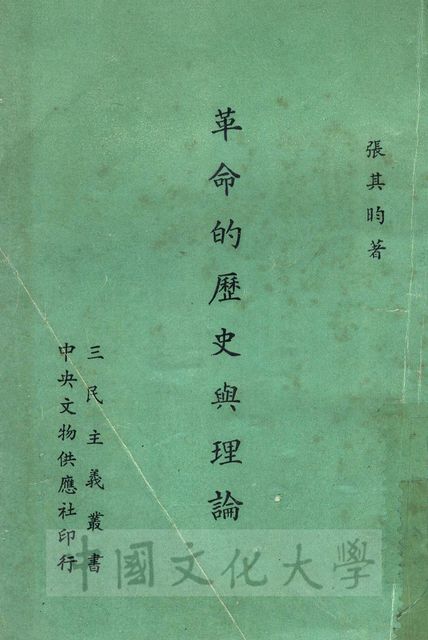 張其昀著
革命的歷史與理論
三民主義叢書
中央文物供應社印行
中國文化大學